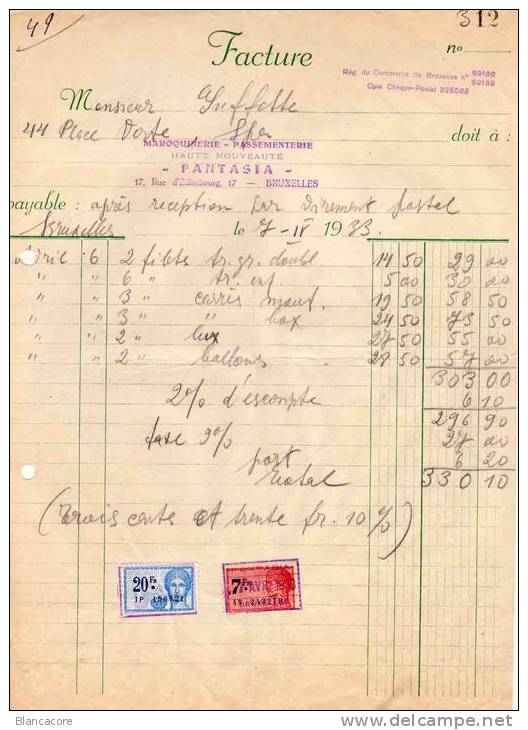 49
312
Facture
no
Rég. du Commerce de Bruxelles no 69188
69189
Cpte Chèque-Postal 325588
Monsieur
44 Place Spa
doit à :
MAROQUINERIE - PASSEMENTERIE
HAUTE NOUVEAUTÉ
- FANTASIA -
17, Rue d'Edimbourg, 17 — BRUXELLES
payable : après reception par virement postal
Bruxelles le 7-IV 1933.
Avril 6 2 filets tr. gr. doubl 14 50 29 00
" " 6 " tr. enf. 5 00 30 00
" " 3 " carrés mout 19 50 58 50
" " 3 " " box 24 50 73 50
" " 2 " lux 27 50 55 00
" " 2 " ballons 28 50 57 00
303 00
2% d'escompte 6 10
296 90
taxe 9% 27 00
port 6 20
Total 330 10
(Trois cents et trente fr. 10 %)
20 Fr.
1P 156721
7 Fr.
AVR. 19
Blancacore
www.delcampe.net